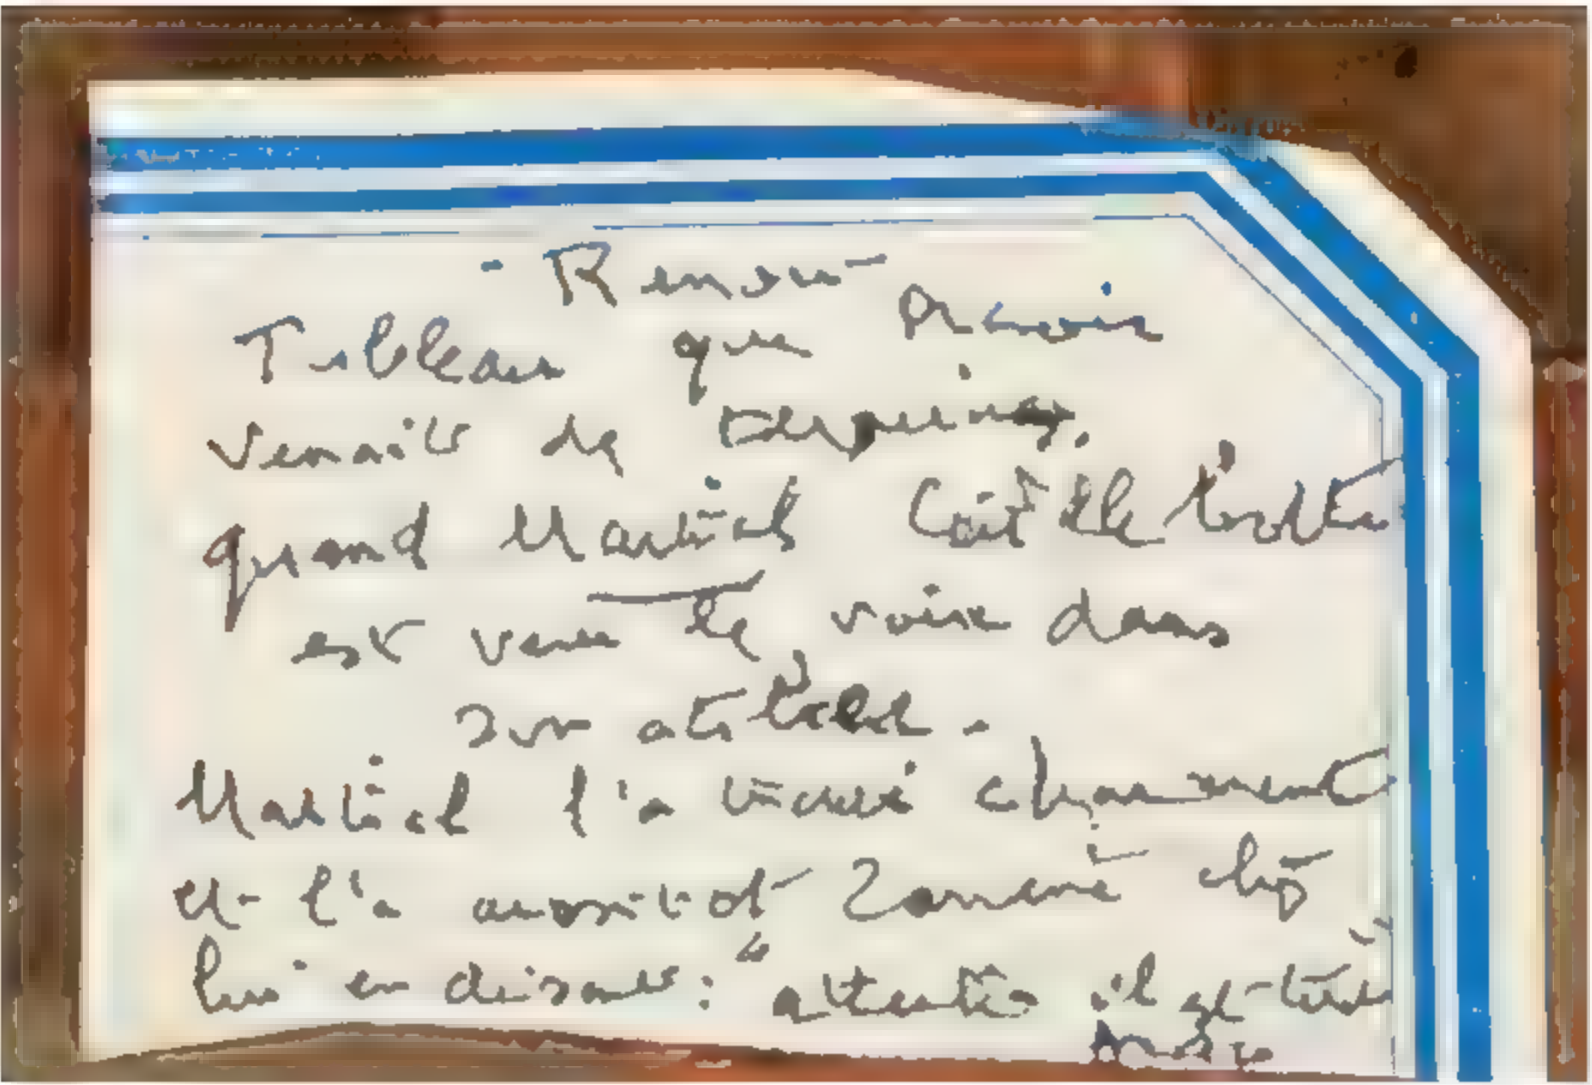 - Renoir -
Tableau que Renoir
venait de terminer,
quand Martial Caillebotte
est venu le voir dans
son atelier.
Martial l'a trouvé charmant
et l'a aussitôt emmené chez
lui en disant : " attention il est très